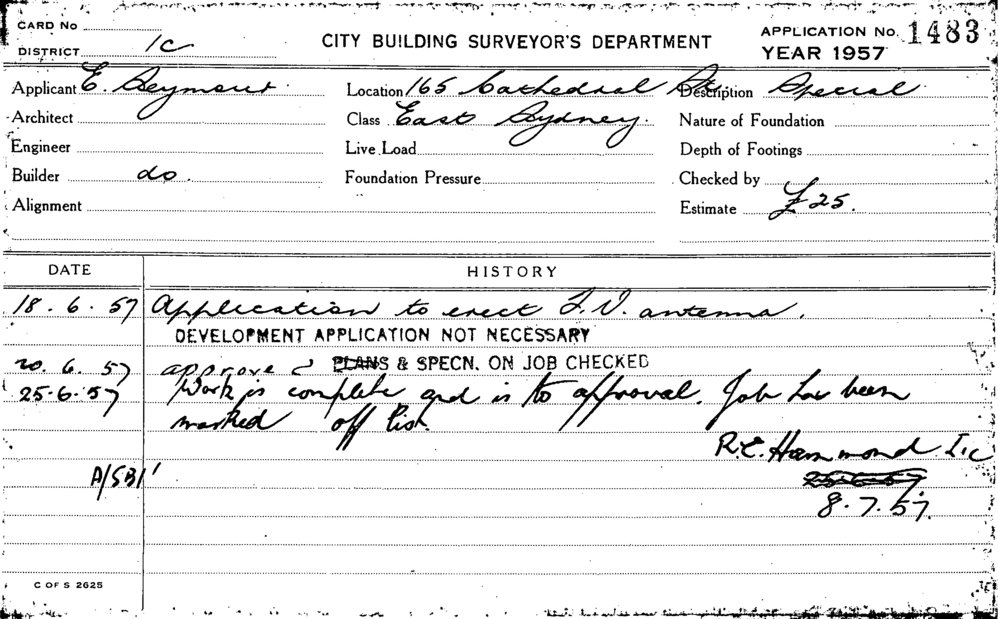 CARD No
DISTRICT 1c
CITY BUILDING SURVEYOR'S DEPARTMENT
APPLICATION No. 1483
YEAR 1957
Applicant E. Seymour Location 165 Cathedral St. Description Special
Architect Class East Sydney. Nature of Foundation
Engineer Live Load Depth of Footings
Builder do Foundation Pressure Checked by
Alignment Estimate £25.
DATE HISTORY
18.6.57 Application to erect T.V. antenna.
DEVELOPMENT APPLICATION NOT NECESSARY
20.6.57 approve PLANS & SPECN. ON JOB CHECKED
25.6.57 Work is complete and is to approval. Job has been
marked off list.
R.E. Hammond
A/SB/1
25.6.57
8.7.57.
C OF S 2625